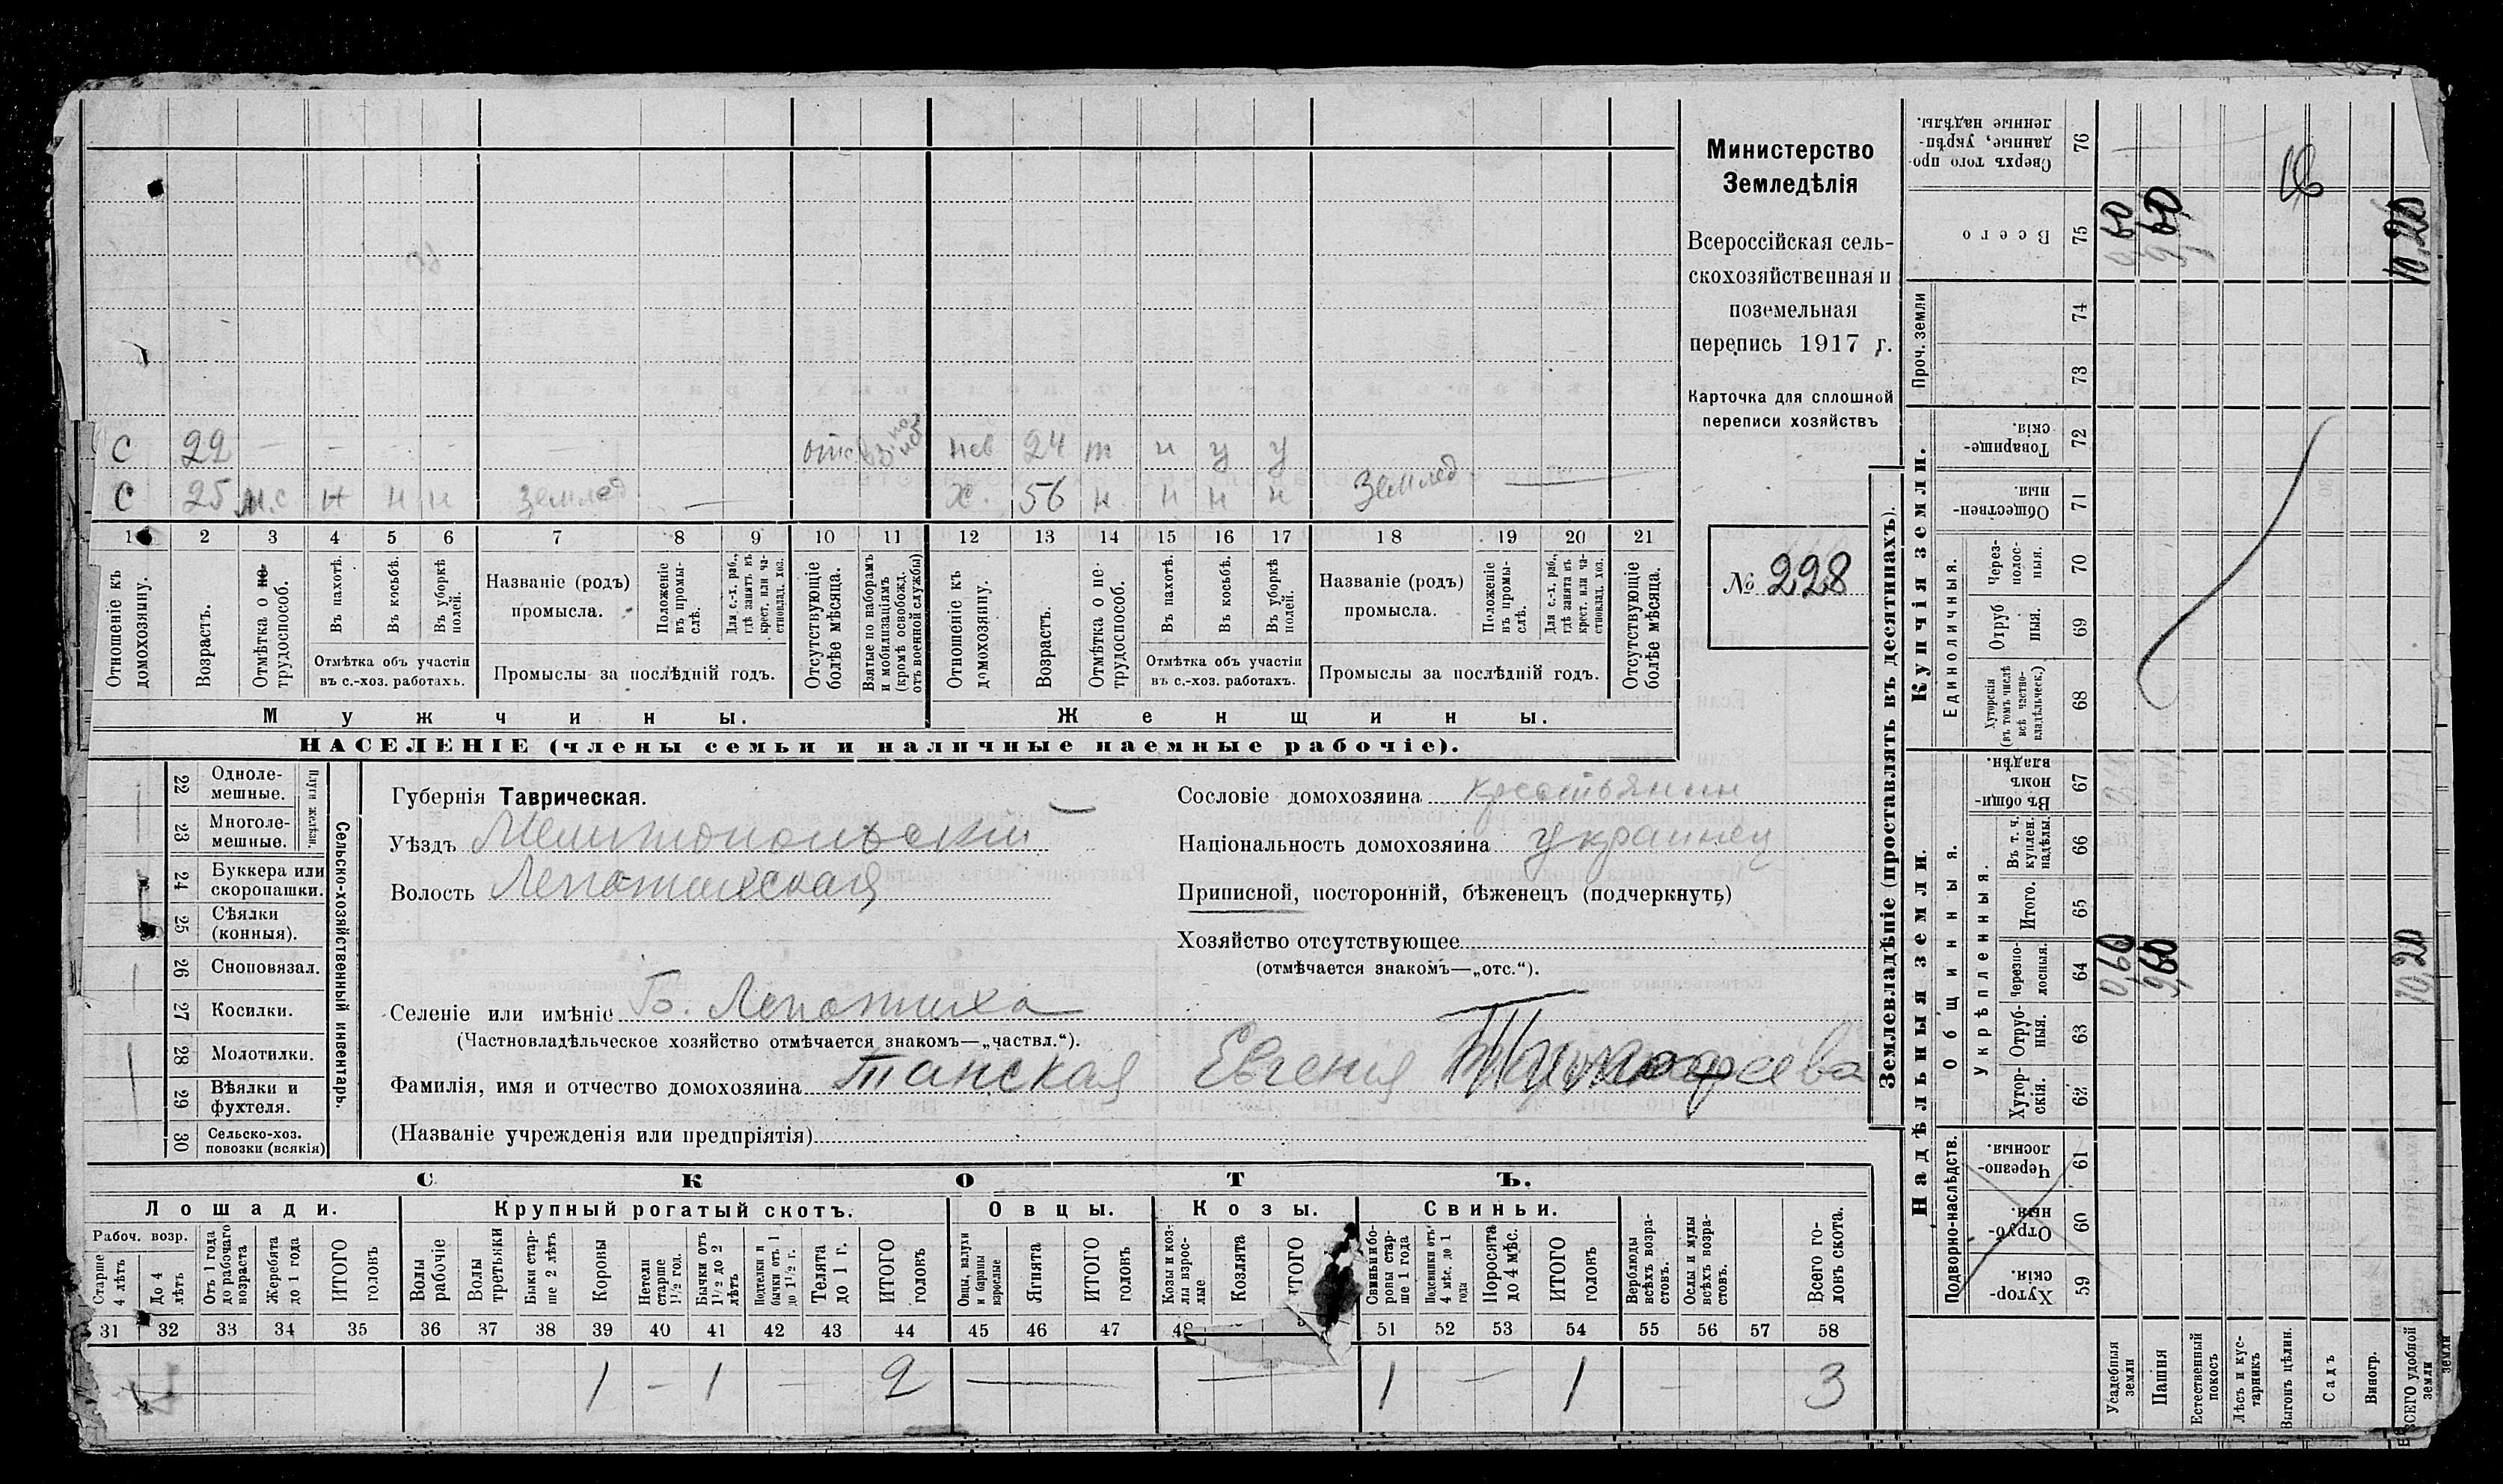 С 22 — — — — отс нев 24 т н у у
С 25 н.с. н н н землед — х. 56 н н н н Землед —
1 2 3 4 5 6 7 8 9 10 11 12 13 14 15 16 17 18 19 20 21
Отношеніе къ домохозяину.
Возрастъ.
Отмѣтка о не-трудоспособ.
Въ пахотѣ.
Въ косьбѣ.
Въ уборкѣ полей.
Отмѣтка объ участіи въ с.-хоз. работахъ.
Названіе (родъ) промысла.
Положеніе въ промы-слѣ.
Для с.-х. раб., гдѣ занятъ въ крест. или ча-стновлад. хоз.
Промыслы за послѣдній годъ.
Отсутствующіе болѣе мѣсяца.
Взятые по наборамъ и мобилизаціямъ (кромѣ освобожд. отъ военной службы)
Отношеніе къ домохозяину.
Возрастъ.
Отмѣтка о не-трудоспособ.
Въ пахотѣ.
Въ косьбѣ.
Въ уборкѣ полей.
Отмѣтка объ участіи въ с.-хоз. работахъ.
Названіе (родъ) промысла.
Положеніе въ промы-слѣ.
Для с.-х. раб., гдѣ занята въ крест. или ча-стновлад. хоз.
Промыслы за послѣдній годъ.
Отсутствующіе болѣе мѣсяца.
Мужчины.
Женщины.
НАСЕЛЕНІЕ (члены семьи и наличные наемные рабочіе).
Министерство
Земледѣлія
Всероссійская сель-
скохозяйственная и
поземельная
перепись 1917 г.
Карточка для сплошной
переписи хозяйствъ
№ 228
22 Одноле-мешные.
23 Многоле-мешные.
Плуги желѣзн.
24 Буккера или скоропашки.
25 Сѣялки (конныя).
26 Сноповязал.
27 Косилки.
28 Молотилки.
29 Вѣялки и фухтеля.
30 Сельско-хоз. повозки (всякія)
Сельско-хозяйственный инвентарь.
Губернія Таврическая.
Уѣздъ Мелитопольский
Волость Лепатихская
Селеніе или имѣніе Б. Лепатиха
(Частновладѣльческое хозяйство отмѣчается знакомъ—„частвл.“).
Фамилія, имя и отчество домохозяина Танская Евгения Тимофеева
(Названіе учрежденія или предпріятія)
Сословіе домохозяина крестьянин
Національность домохозяина украинец
Приписной, посторонній, бѣженецъ (подчеркнуть)
Хозяйство отсутствующее
(отмѣчается знакомъ—„отс.“).
СКОТЪ.
Лошади. Крупный рогатый скотъ. Овцы. Козы. Свиньи.
Рабоч. возр.
Старше 4 лѣтъ
До 4 лѣтъ
Отъ 1 года до рабочаго возраста
Жеребята до 1 года
ИТОГО головъ
Волы рабочіе
Волы третьяки
Быки стар-ше 2 лѣтъ
Коровы
Нетели старше 1½ год.
Бычки отъ 1½ до 2 лѣтъ
Подтелки и бычки отъ 1 до 1½ г.
Телята до 1 г.
ИТОГО головъ
Овцы, валухи и бараны взрослые
Ягнята
ИТОГО головъ
Козы и коз-лы взрос-лые
Козлята
ИТОГО
Свиньи бо-ровы стар-ше 1 года
Подсвинки отъ 4 мѣс. до 1 года
Поросята до 4 мѣс.
ИТОГО головъ
Верблюды всѣхъ возра-стовъ.
Ослы и мулы всѣхъ возра-стовъ.
Всего го-ловъ скота.
31 32 33 34 35 36 37 38 39 40 41 42 43 44 45 46 47 48 51 52 53 54 55 56 57 58
1 — 1 — 2 — — 1 — 1 — 3
Землевладѣніе (проставлять въ десятинахъ).
Надѣльныя земли.
Купчія земли.
Проч. земли
Подворно-наслѣдств.
Общинныя.
Укрѣпленныя.
Единоличныя.
59 Хутор-скія.
60 Отруб-ныя.
61 Черезпо-лосныя.
62 Хутор-скія.
63 Отруб-ныя.
64 Черезпо-лосныя.
65 Итого.
66 Въ т. ч. куплен. надѣлы.
67 Въ общин-номъ владѣн.
68 Хуторскія (въ томъ числѣ всѣ частно-владѣльческ.)
69 Отруб-ныя.
70 Через-полос-ныя.
71 Обществен-ныя.
72 Товарище-скія.
73
74
75 Всего
76 Сверхъ того про-данные, укрѣп-ленные надѣлы.
Усадебныя земли 0,60 0,60
Пашня 9,60 9,60
Естественный покосъ
Лѣсъ и кус-тарникъ
Выгонъ цѣлин.
Садъ
Виногр.
ВСЕГО удобной земли 10,20 10,20
16